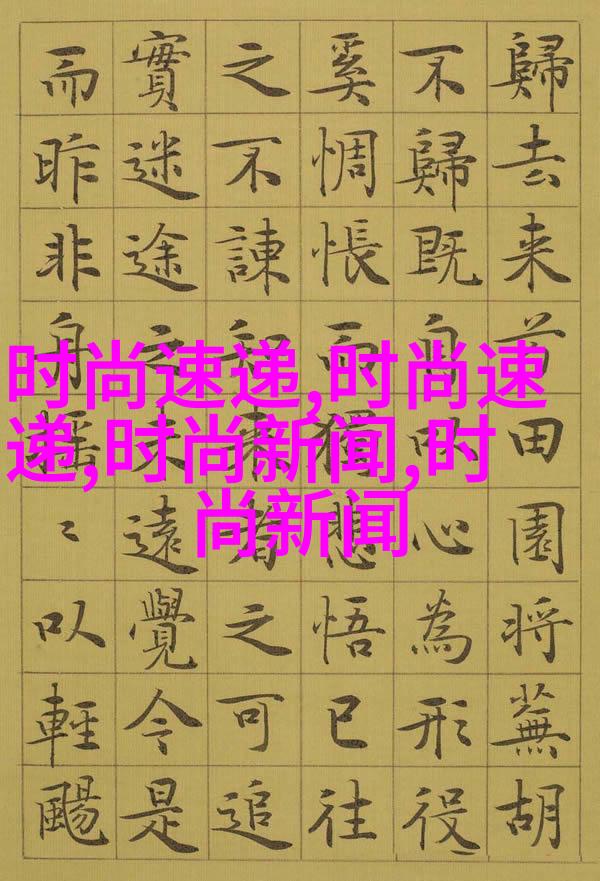 歸去来田園将蕪胡
不歸既自以心為形役
奚惆悵而獨悲悟已往
之不諫知来者之可追
實迷途未遠覺今是
而昨非舟摇〻以輕颺
时尚速递,时尚速
递,时尚新闻,时
尚新闻